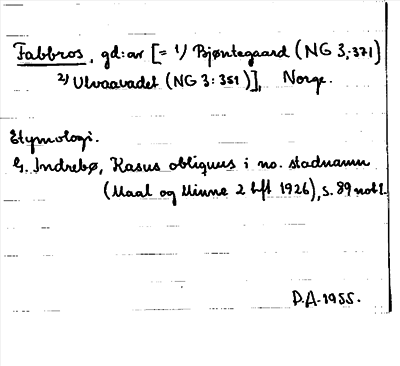 Fabbros, gd:ar [= 1) Bjøntegaard (NG 3:371)
2) Ulvaavadet (NG 3:351)], Norge.
Etymologi.
G. Indrebø, Kasus obliquus i no. stadnamn
(Maal og Minne 2 hft 1926), s. 89 not 1.
D.A. 1955.